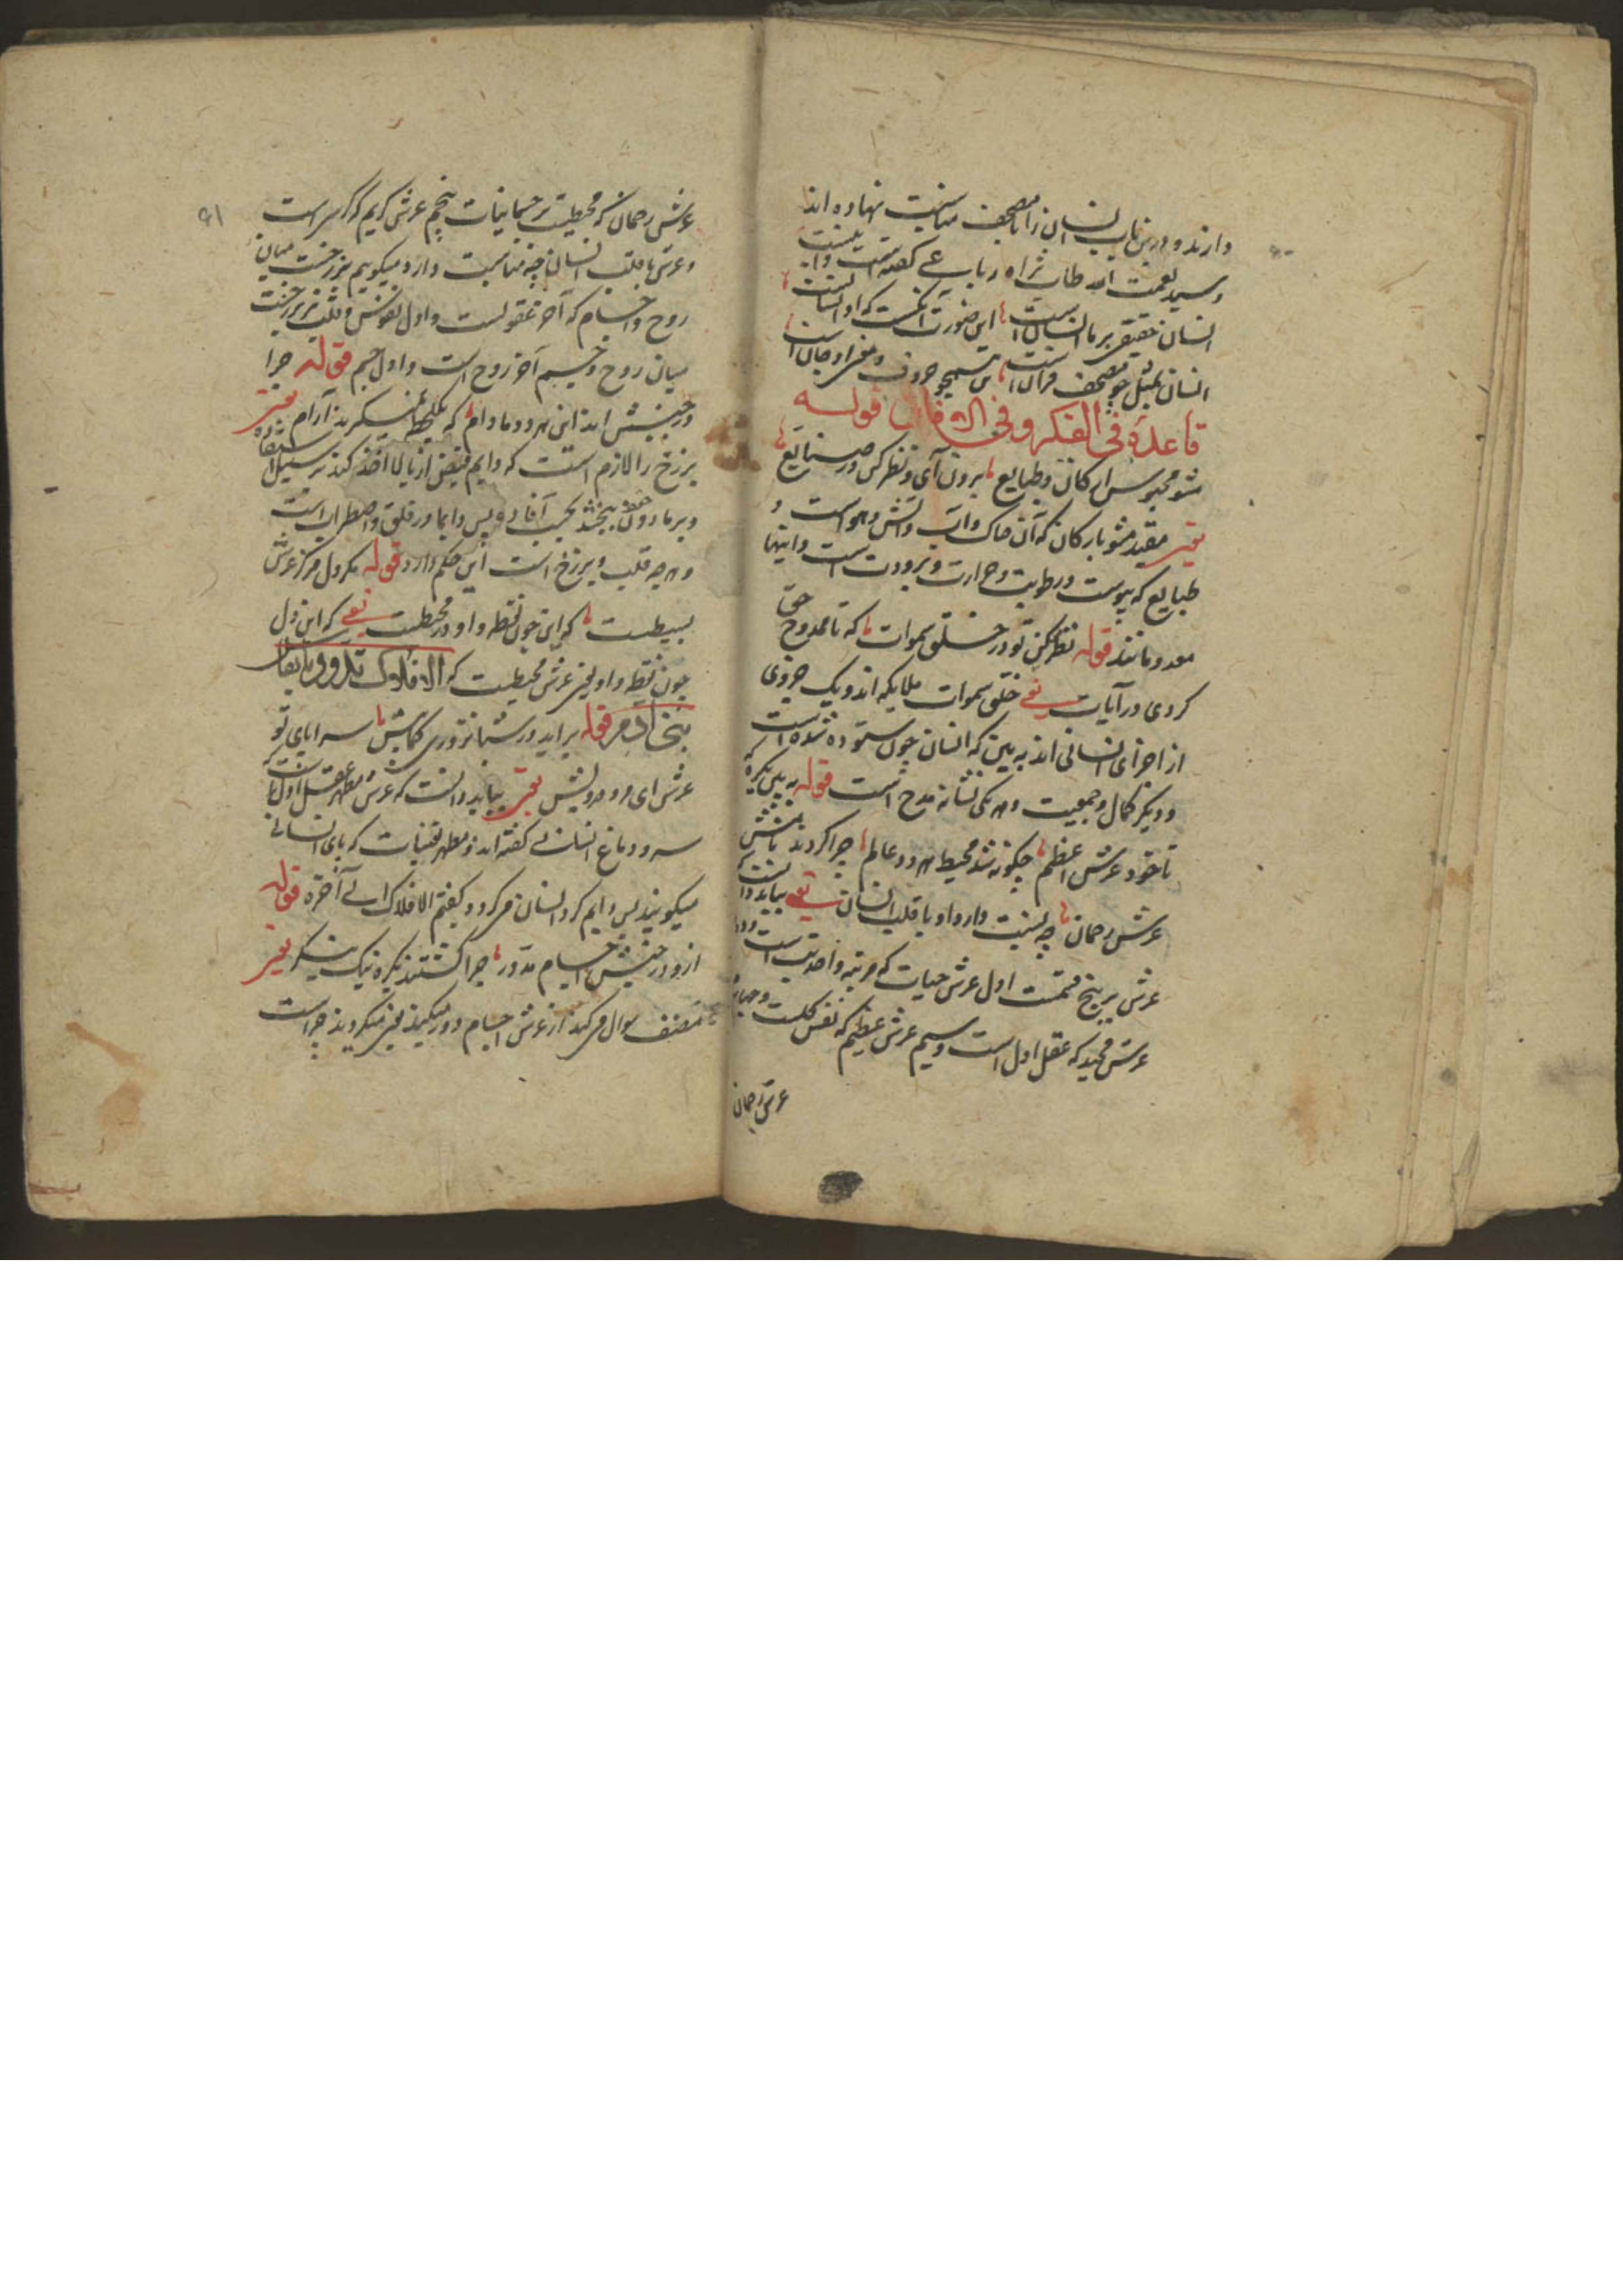 دارند و درین باب انسان را با مصحف مناسبت نهاده اند
و سید نعمت الله طاب ثراه رباعی گفته است و آن اینست
انسان حقیقی بر ما انسان است این صورت آنکست که او انسانست
انسان بمثل چو مصحف قرآن است تن همچو حروف و معنی او جان است
قاعدة فی الفکر و فی الافاق قوله
مشو محبوس ارکان و طبایع برون آی و نظر کن در صنایع
یعنی مقید مشو بارکان که آن خاک و آب و آتش و هواست و
طبایع که یبوست و رطوبت و حرارت و برودت است و اینها
معدوم‌اند قوله تفکر کن تو در خلق سموات که تا ممدوح حق
کردی در آیات یعنی خلق سموات ملایکه اند و یک جزوی
از اجزای انسانی اند به بین که انسان چون ستوده شده است
و دیگر کمال و جمعیت و هر یکی نشانهٔ مدح است قوله به بین یکره که
تا خود عرش اعظم چگونه شد محیط هر دو عالم چرا کردند نامش
عرش رحمان چه نسبت دارد او با قلب انسان یعنی بباید دانست که
عرش بر پنج قسمت اول عرش حیات که مرتبهٔ واحدیتست دوم
عرش مجید که عقل اول است و سیم عرش عظیم که نفس کلست و چهارم
عرش رحمان
۹۱
عرش رحمان که محیطیت بر جسمانیات پنجم عرش کریم که کرسی است
و عرش با قلب انسانی چه مناسبت دارد میگوییم برزخیت میان
روح و اجسام که آخر عقولست و اول نفوس و قلب نیز برزخیت
میان روح و جسم آخر روح است و اول جسم قوله چرا
در جنبش اند این هر دو مادام که یکلحظه نمیگیرند آرام یعنی
برزخ را لازم است که دایم فیض از بالا اخذ کند بر سبیل استفاده
و بر مادون خود ببخشد بحسب افاده پس دایما در قلق و اضطراب است
و هر چه قلب و برزخ است این حکم دارد قوله مگر دل مرکز عرش
بسیطست که این چون نقطه و او دور محیطست یعنی که این دل
چون نقطه و او یعنی عرش محیطیت که الافلاک تدور بانفاس
بنی آدم قوله برآید در شبانروزی کمابیش سراپای تو
عرش ای مرد درویش یعنی بباید دانست که عرش مظهر عقل اول است که
سر و دماغ انسانی گفته اند و مظهر نفسیات که پای انسانی
میگویند پس دایم گرد انسان میگردد گفتم الافلاک الی آخره قوله
ازو در جنبش اجسام مدور چرا گشتند یکره نیک بنگر یعنی
مصنف سوال میکند از عرش اجسام دور میکنند یعنی میگردند چراست